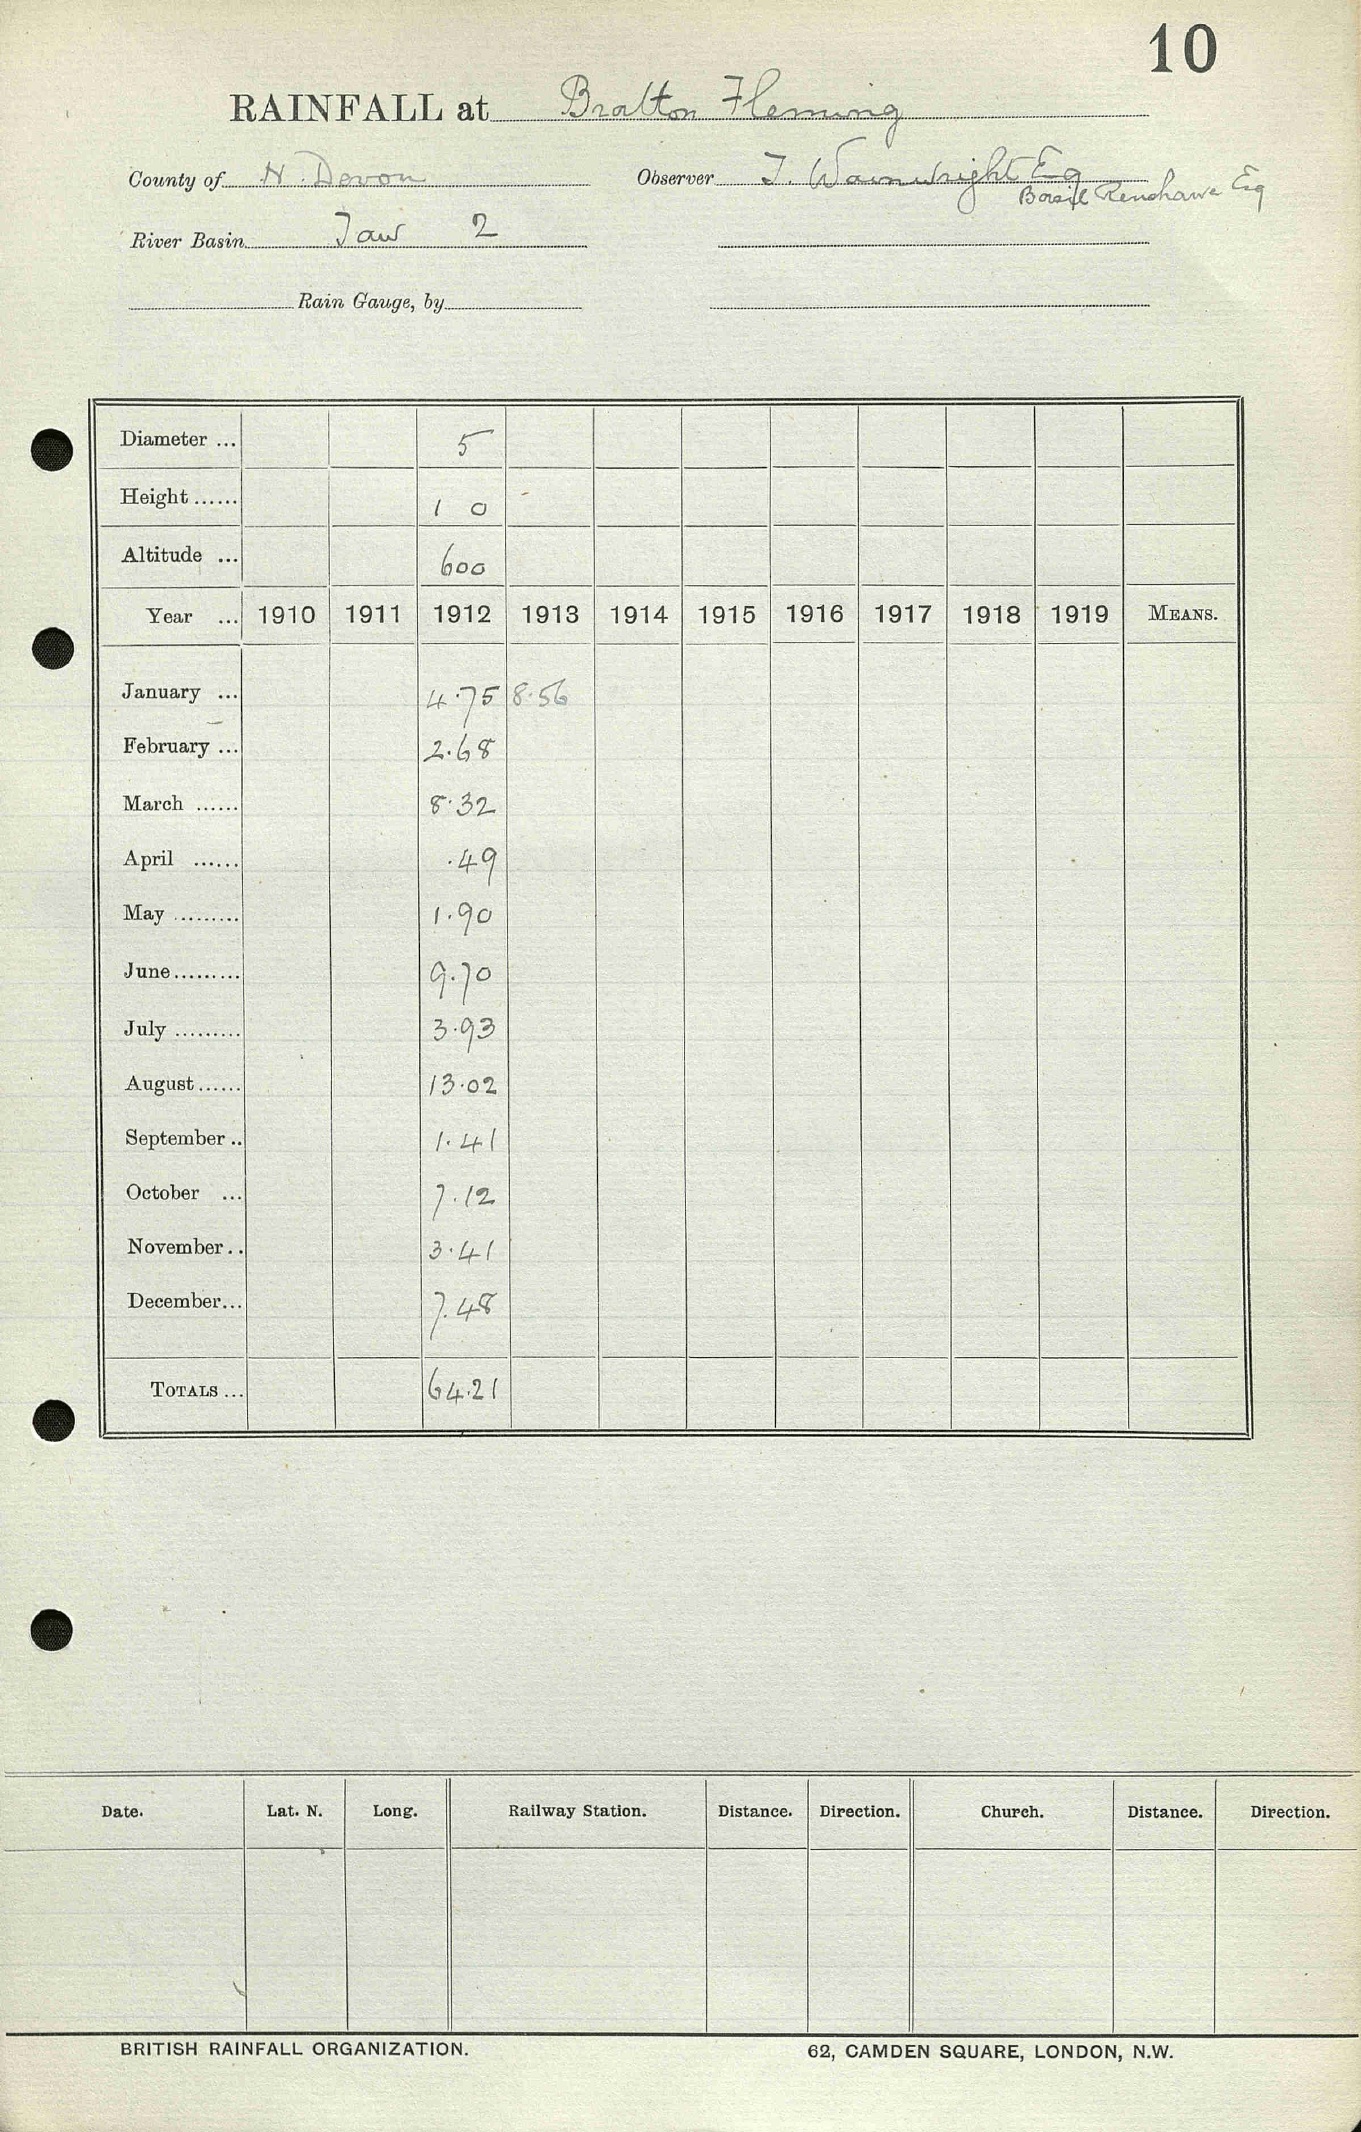 10
RAINFALL at Bratton Fleming
County of N. Devon Observer T. Wainwright Esq
Basil Renshawe Esq
River Basin Taw 2
Rain Gauge, by
Diameter ... 5
Height ...... 1 0
Altitude ... 600
Year ... 1910 1911 1912 1913 1914 1915 1916 1917 1918 1919 MEANS.
January ... 4.75 8.56
February ... 2.68
March ...... 8.32
April ...... .49
May ......... 1.90
June ......... 9.70
July ......... 3.93
August ...... 13.02
September .. 1.41
October ... 7.12
November .. 3.41
December ... 7.48
TOTALS ... 64.21
Date. Lat. N. Long. Railway Station. Distance. Direction. Church. Distance. Direction.
BRITISH RAINFALL ORGANIZATION. 62, CAMDEN SQUARE, LONDON, N.W.